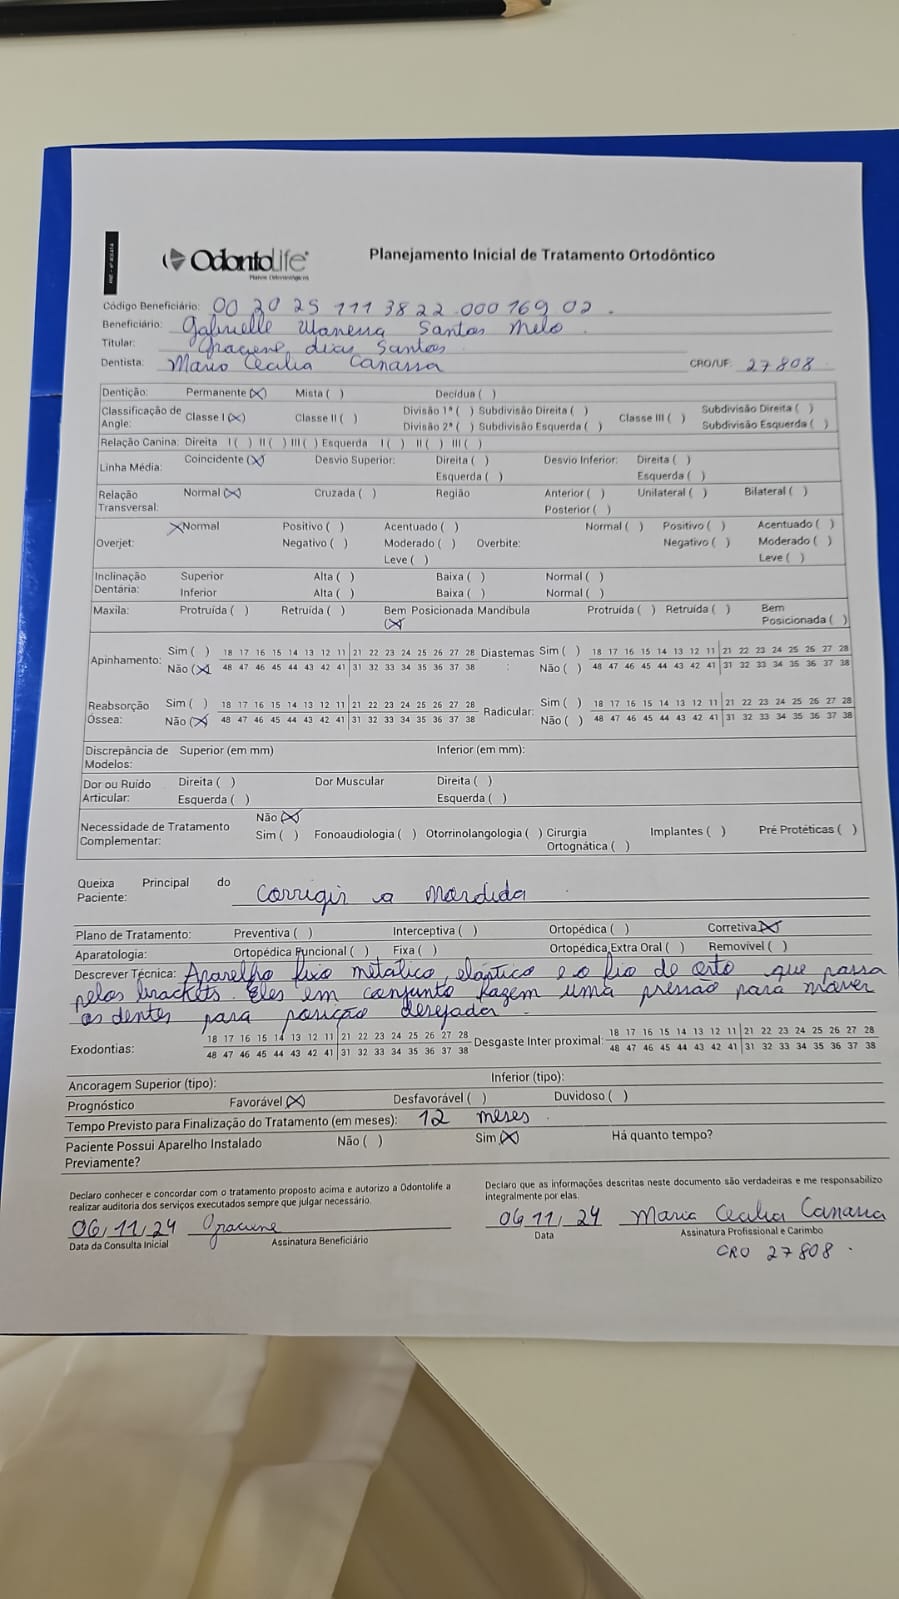 OdontoLife
Planos Odontológicos
Planejamento Inicial de Tratamento Ortodôntico
Código Beneficiário: 00 20 25 111 3822 000 169 02 .
Beneficiário: Gabrielle Santos Melo .
Titular: Graciene dias Santos
Dentista: Maria Cecilia Canassa CRO/UF: 27808
Dentição: Permanente (X) Mista ( ) Decídua ( )
Classificação de Angle: Classe I (X) Classe II ( ) Divisão 1ª ( ) Subdivisão Direita ( ) Classe III ( ) Subdivisão Direita ( )
Divisão 2ª ( ) Subdivisão Esquerda ( ) Subdivisão Esquerda ( )
Relação Canina: Direita I ( ) II ( ) III ( ) Esquerda I ( ) II ( ) III ( )
Linha Média: Coincidente (X) Desvio Superior: Direita ( ) Desvio Inferior: Direita ( )
Esquerda ( ) Esquerda ( )
Relação Transversal: Normal (X) Cruzada ( ) Região Anterior ( ) Unilateral ( ) Bilateral ( )
Posterior ( )
Overjet: X Normal Positivo ( ) Acentuado ( ) Overbite: Normal ( ) Positivo ( ) Acentuado ( )
Negativo ( ) Moderado ( ) Negativo ( ) Moderado ( )
Leve ( ) Leve ( )
Inclinação Dentária: Superior Alta ( ) Baixa ( ) Normal ( )
Inferior Alta ( ) Baixa ( ) Normal ( )
Maxila: Protruída ( ) Retruída ( ) Bem Posicionada (X) Mandíbula Protruída ( ) Retruída ( ) Bem Posicionada ( )
Apinhamento: Sim ( ) 18 17 16 15 14 13 12 11 21 22 23 24 25 26 27 28 Diastemas: Sim ( ) 18 17 16 15 14 13 12 11 21 22 23 24 25 26 27 28
Não (X) 48 47 46 45 44 43 42 41 31 32 33 34 35 36 37 38 Não ( ) 48 47 46 45 44 43 42 41 31 32 33 34 35 36 37 38
Reabsorção Óssea: Sim ( ) 18 17 16 15 14 13 12 11 21 22 23 24 25 26 27 28 Radicular: Sim ( ) 18 17 16 15 14 13 12 11 21 22 23 24 25 26 27 28
Não (X) 48 47 46 45 44 43 42 41 31 32 33 34 35 36 37 38 Não ( ) 48 47 46 45 44 43 42 41 31 32 33 34 35 36 37 38
Discrepância de Modelos: Superior (em mm) Inferior (em mm):
Dor ou Ruído Articular: Direita ( ) Dor Muscular Direita ( )
Esquerda ( ) Esquerda ( )
Necessidade de Tratamento Complementar: Não (X)
Sim ( ) Fonoaudiologia ( ) Otorrinolangologia ( ) Cirurgia Ortognática ( ) Implantes ( ) Pré Protéticas ( )
Queixa Principal do Paciente: Corrigir a Mordida .
Plano de Tratamento: Preventiva ( ) Interceptiva ( ) Ortopédica ( ) Corretiva (X)
Aparatologia: Ortopédica Funcional ( ) Fixa ( ) Ortopédica Extra Oral ( ) Removível ( )
Descrever Técnica: Aparelho fixo metálico, elástico e o fio de arto que passa
pelos brackets. Eles em conjunto fazem uma pressão para mover
os dentes para posição desejada .
Exodontias: 18 17 16 15 14 13 12 11 21 22 23 24 25 26 27 28 Desgaste Inter proximal: 18 17 16 15 14 13 12 11 21 22 23 24 25 26 27 28
48 47 46 45 44 43 42 41 31 32 33 34 35 36 37 38 48 47 46 45 44 43 42 41 31 32 33 34 35 36 37 38
Ancoragem Superior (tipo): Inferior (tipo):
Prognóstico Favorável (X) Desfavorável ( ) Duvidoso ( )
Tempo Previsto para Finalização do Tratamento (em meses): 12 meses .
Paciente Possui Aparelho Instalado Previamente? Não ( ) Sim (X) Há quanto tempo?
Declaro conhecer e concordar com o tratamento proposto acima e autorizo a Odontolife a
realizar auditoria dos serviços executados sempre que julgar necessário.
06/11/24 Graciene
Data da Consulta Inicial Assinatura Beneficiário
Declaro que as informações descritas neste documento são verdadeiras e me responsabilizo
integralmente por elas.
06 11/24 Maria Cecilia Canassa
Data Assinatura Profissional e Carimbo
CRO 27808 .